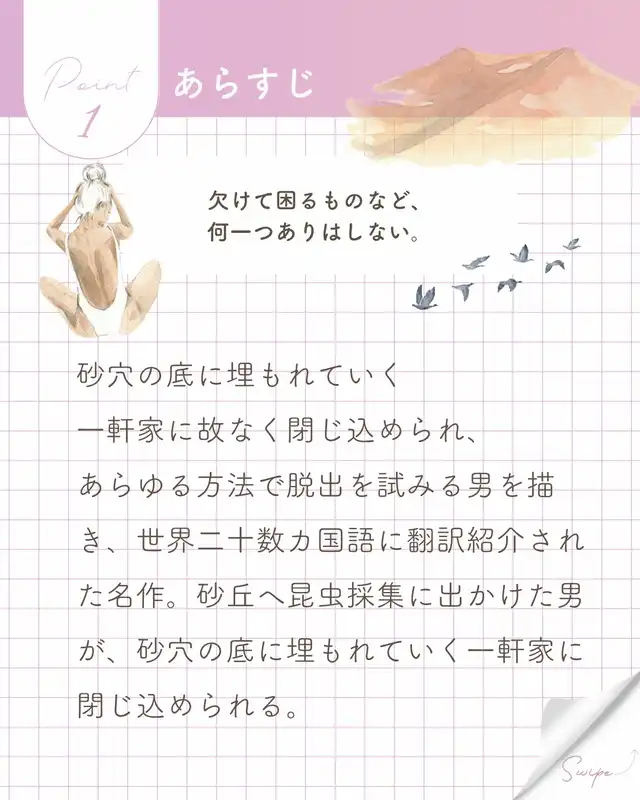 Point
1
あらすじ
欠けて困るものなど、
何一つありはしない。
砂穴の底に埋もれていく
一軒家に故なく閉じ込められ、
あらゆる方法で脱出を試みる男を描
き、世界二十数カ国語に翻訳紹介され
た名作。砂丘へ昆虫採集に出かけた男
が、砂穴の底に埋もれていく一軒家に
閉じ込められる。
Swipe